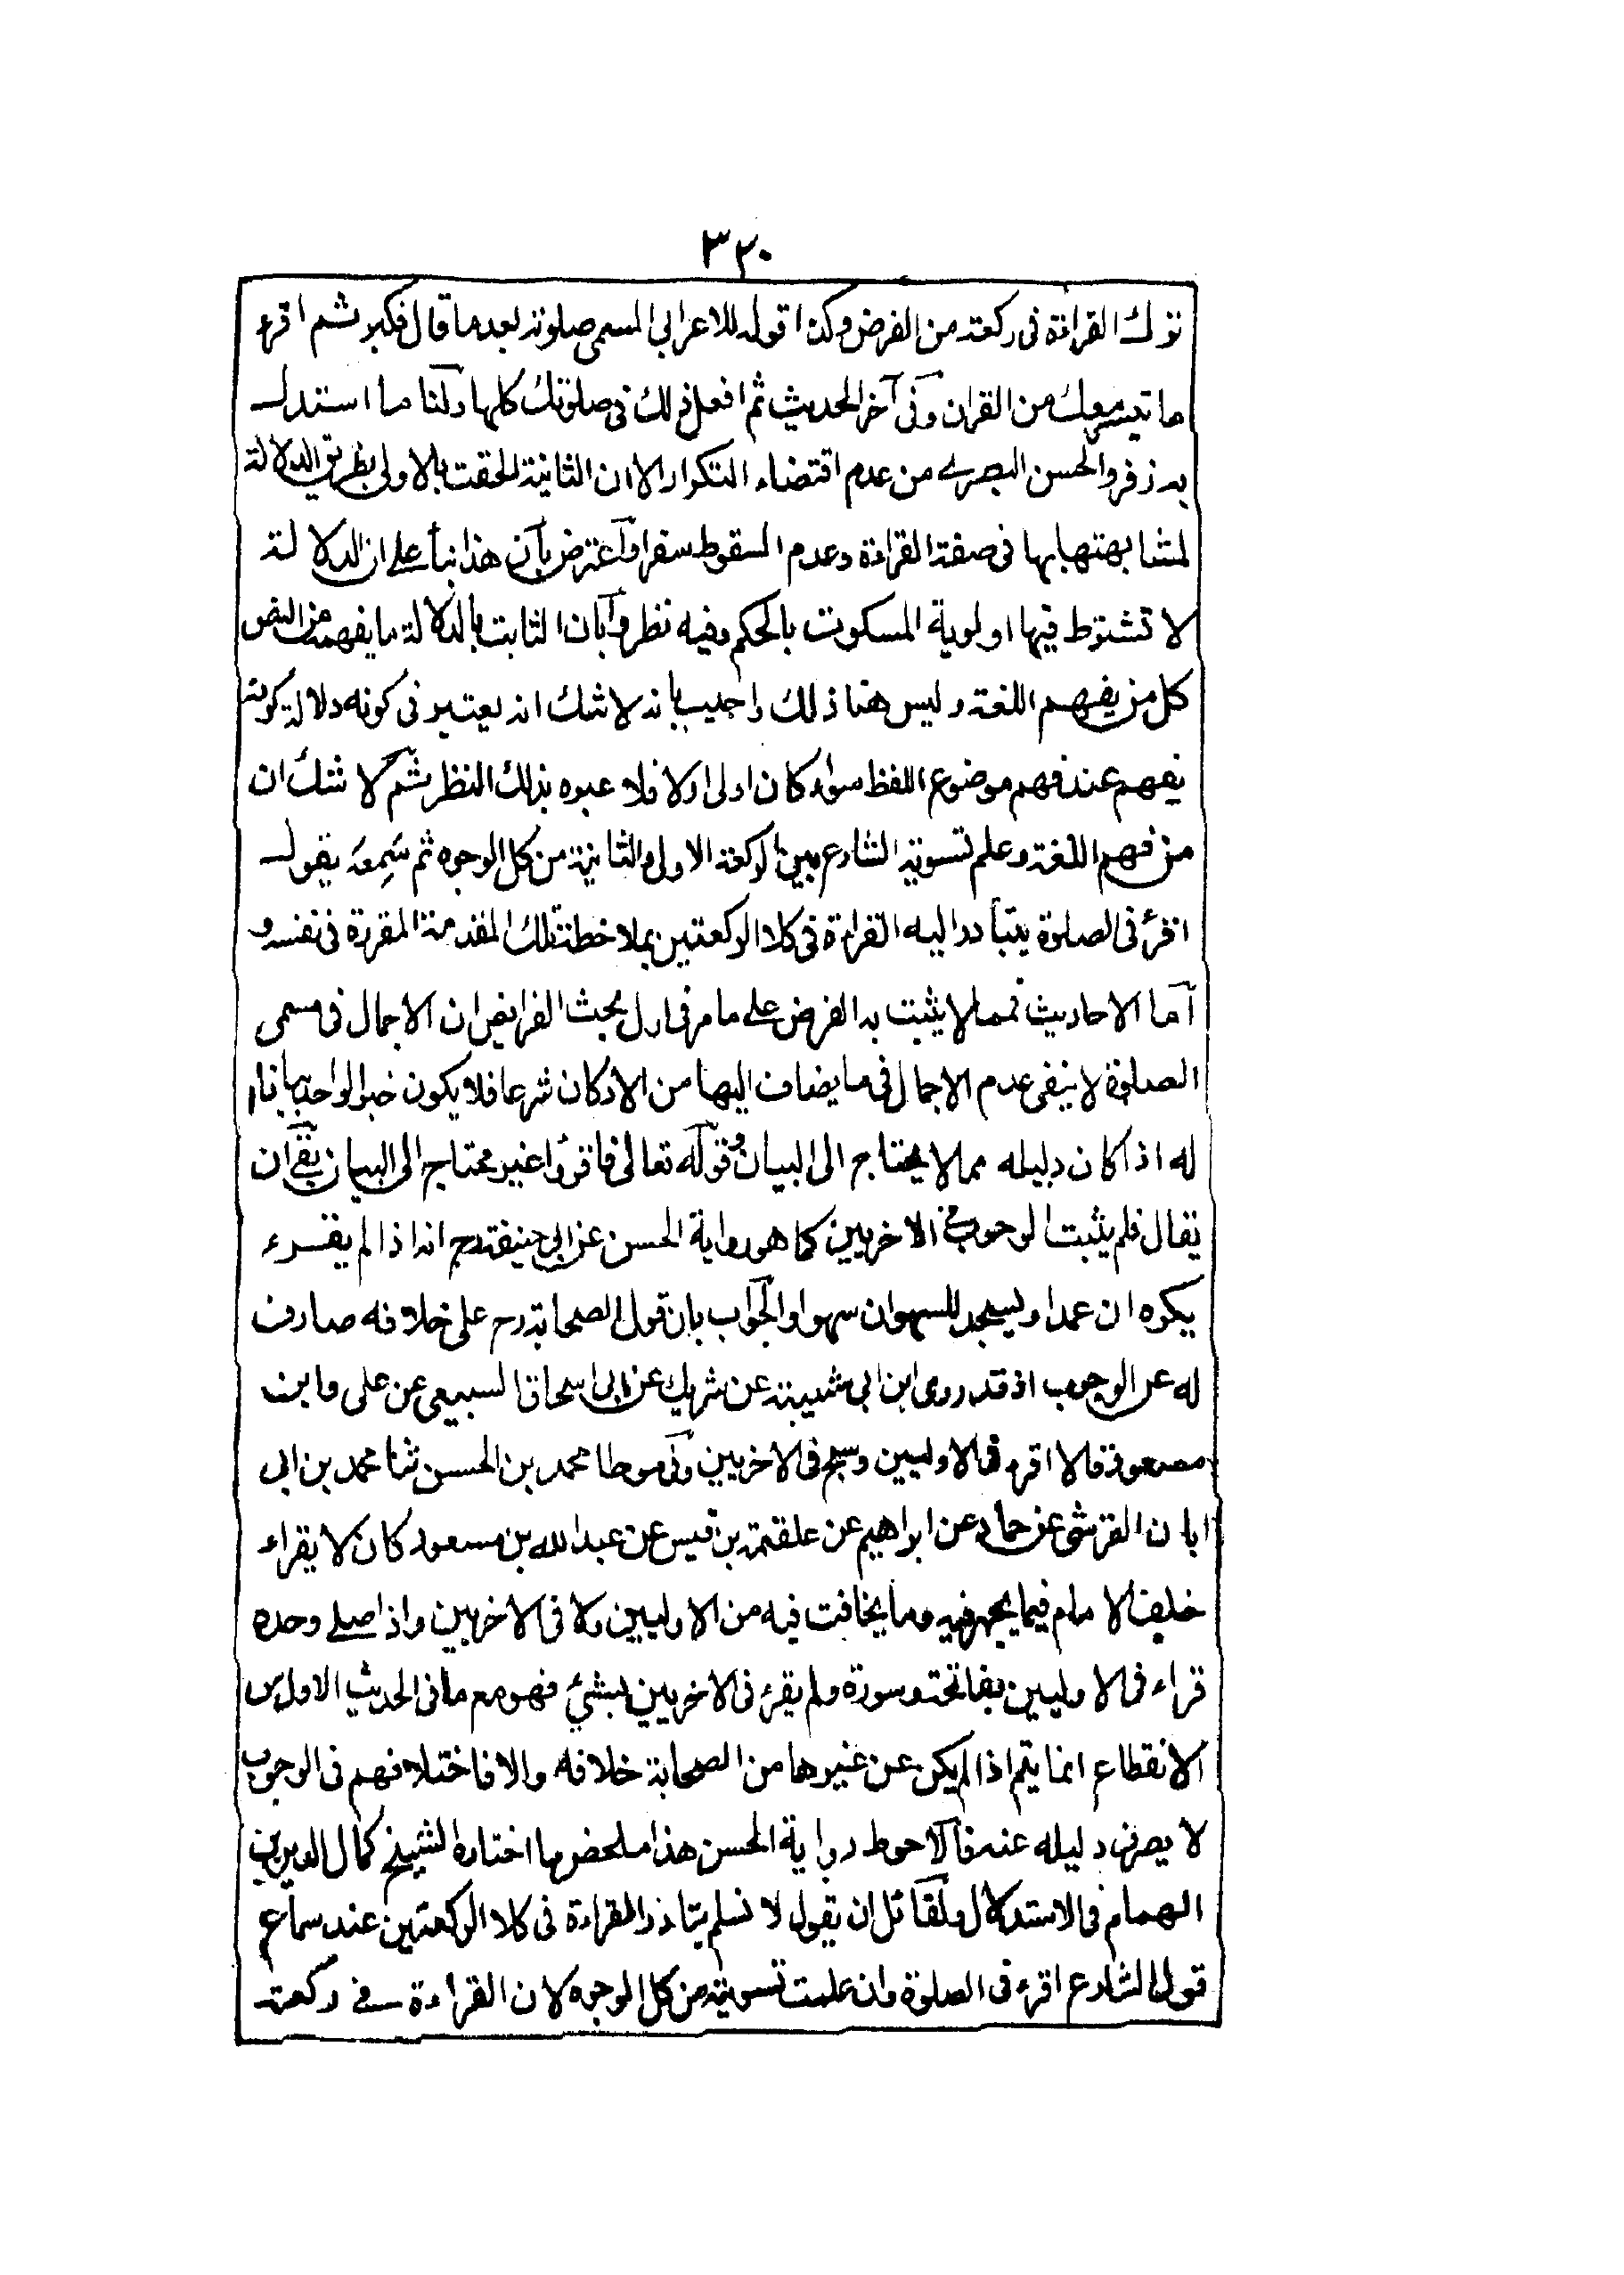 ٣٢٠
ترك القراءة فى ركعة من الفرض وكذا قوله للاعرابى المسئ صلوته بعد ما قال فكبر ثم اقرء
ما تيسر معك من القران وفى آخر الحديث ثم افعل ذلك فى صلوتك كلها ولنا ما استدل
به زفر والحسن البصرى من عدم اقتضاء التكرار الا ان الثانية الحقت بالاولى بطريق الدلالة
لمشابهتها بها فى صفة القراءة وعدم السقوط سفرا واعترض بان هذا بناء على ان الدلالة
لا تشترط فيها اولوية المسكوت بالحكم وفيه نظر وبان الثابت بالدلالة ما يفهمه من النص
كل من يفهم اللغة وليس هنا ذلك واجيب بانه لا شك انه يعتبر فى كونه دلالة كونه
يفهم عند فهم موضوع اللفظ سواء كان اولى اولا فلا عبره بذلك النظر ثم لا شك ان
من فهم اللغة وعلم تسوية الشارع بين الركعة الاولى والثانية من كل الوجوه ثم سَمِعَه يقول
اقرئ فى الصلوة يتبادر اليه القراءة فى كلا الركعتين بملاحظة تلك المقدمة المقررة فى نفسه و
اما الاحاديث فمما لا يثبت به الفرض على ما مر فى اول بحث الفرايض ان الاجمال فى مسمى
الصلوة لا ينفى عدم الاجمال فى ما يضاف اليها من الاركان شرعا فلا يكون خبر الواحد بيانا
له اذا كان دليله مما لا يحتاج الى البيان وقوله تعالى فاقرؤا غير محتاج الى البيان بقى ان
يقال فلم يثبت الوجوب فى الاخريين كما هو رواية الحسن عن ابى حنيفة رح انه اذا لم يقرء
يكره ان عمدا ويسجد للسهو ان سهوا والجواب بان قول الصحابة رح على خلافه صارف
له عن الوجوب اذ قد روى ابن ابى شيبة عن شريك عن ابى اسحاق السبيعى عن على وابن
مسعود قالا اقرء فى الاوليين وسبح فى الاخريين وفى موطا محمد بن الحسن ثنا محمد بن ابى
ابان القرشى عن حماد عن ابراهيم عن علقمة بن قيس عن عبد الله بن مسعود كان لا يقراء
خلف الامام فيما يجهر فيه وما يخافت فيه من الاوليين ولا فى الاخريين واذا صلى وحده
قراء فى الاوليين بفاتحة وسورة ولم يقرء فى الاخريين بشئ فهو مع ما فى الحديث الاول من
الانقطاع انما يتم اذا لم يكن عن غيرها من الصحابة خلافه والا فاختلافهم فى الوجوب
لا يصرف دليله عنه فالاحوط رواية الحسن هذا ملخص ما اختاره الشيخ كمال الدين بن
الهمام فى الاستدلال ولقائل ان يقول لا نسلم يتبادر القراءة فى كلا الركعتين عند سماع
قول الشارع اقرء فى الصلوة وان علمت تسوية من كل الوجوه لان القراءة فى ركعة